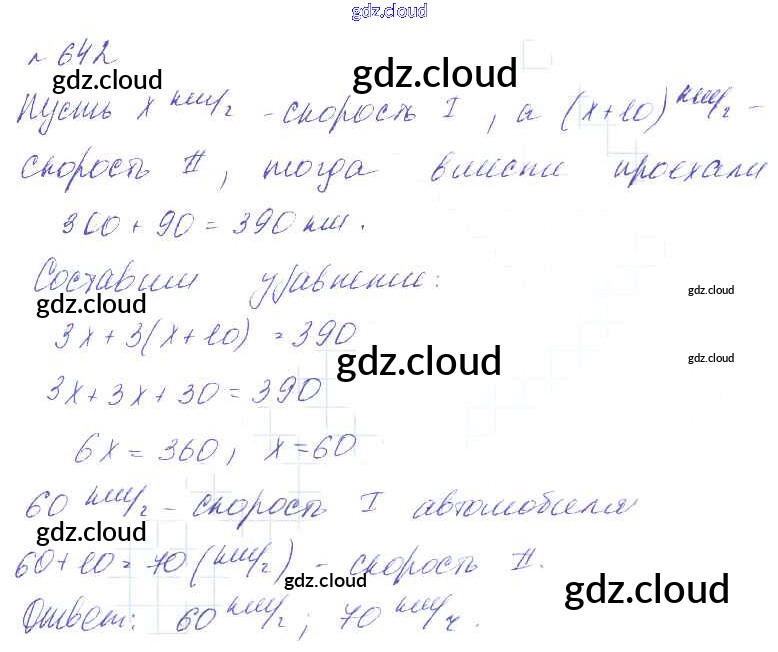 gdz.cloud
№ 642
gdz.cloud
gdz.cloud
Пусть x км/ч - скорость I, а (x+10) км/ч -
скорость II, тогда вместе проехали
360 + 90 = 390 км.
Составим уравнение:
gdz.cloud
gdz.cloud
3x + 3(x+10) = 390
gdz.cloud
gdz.cloud
3x + 3x + 30 = 390
6x = 360, x = 60
60 км/ч - скорость I автомобиля
gdz.cloud
60 + 10 = 70 (км/ч) - скорость II.
gdz.cloud
gdz.cloud
Ответ: 60 км/ч; 70 км/ч.